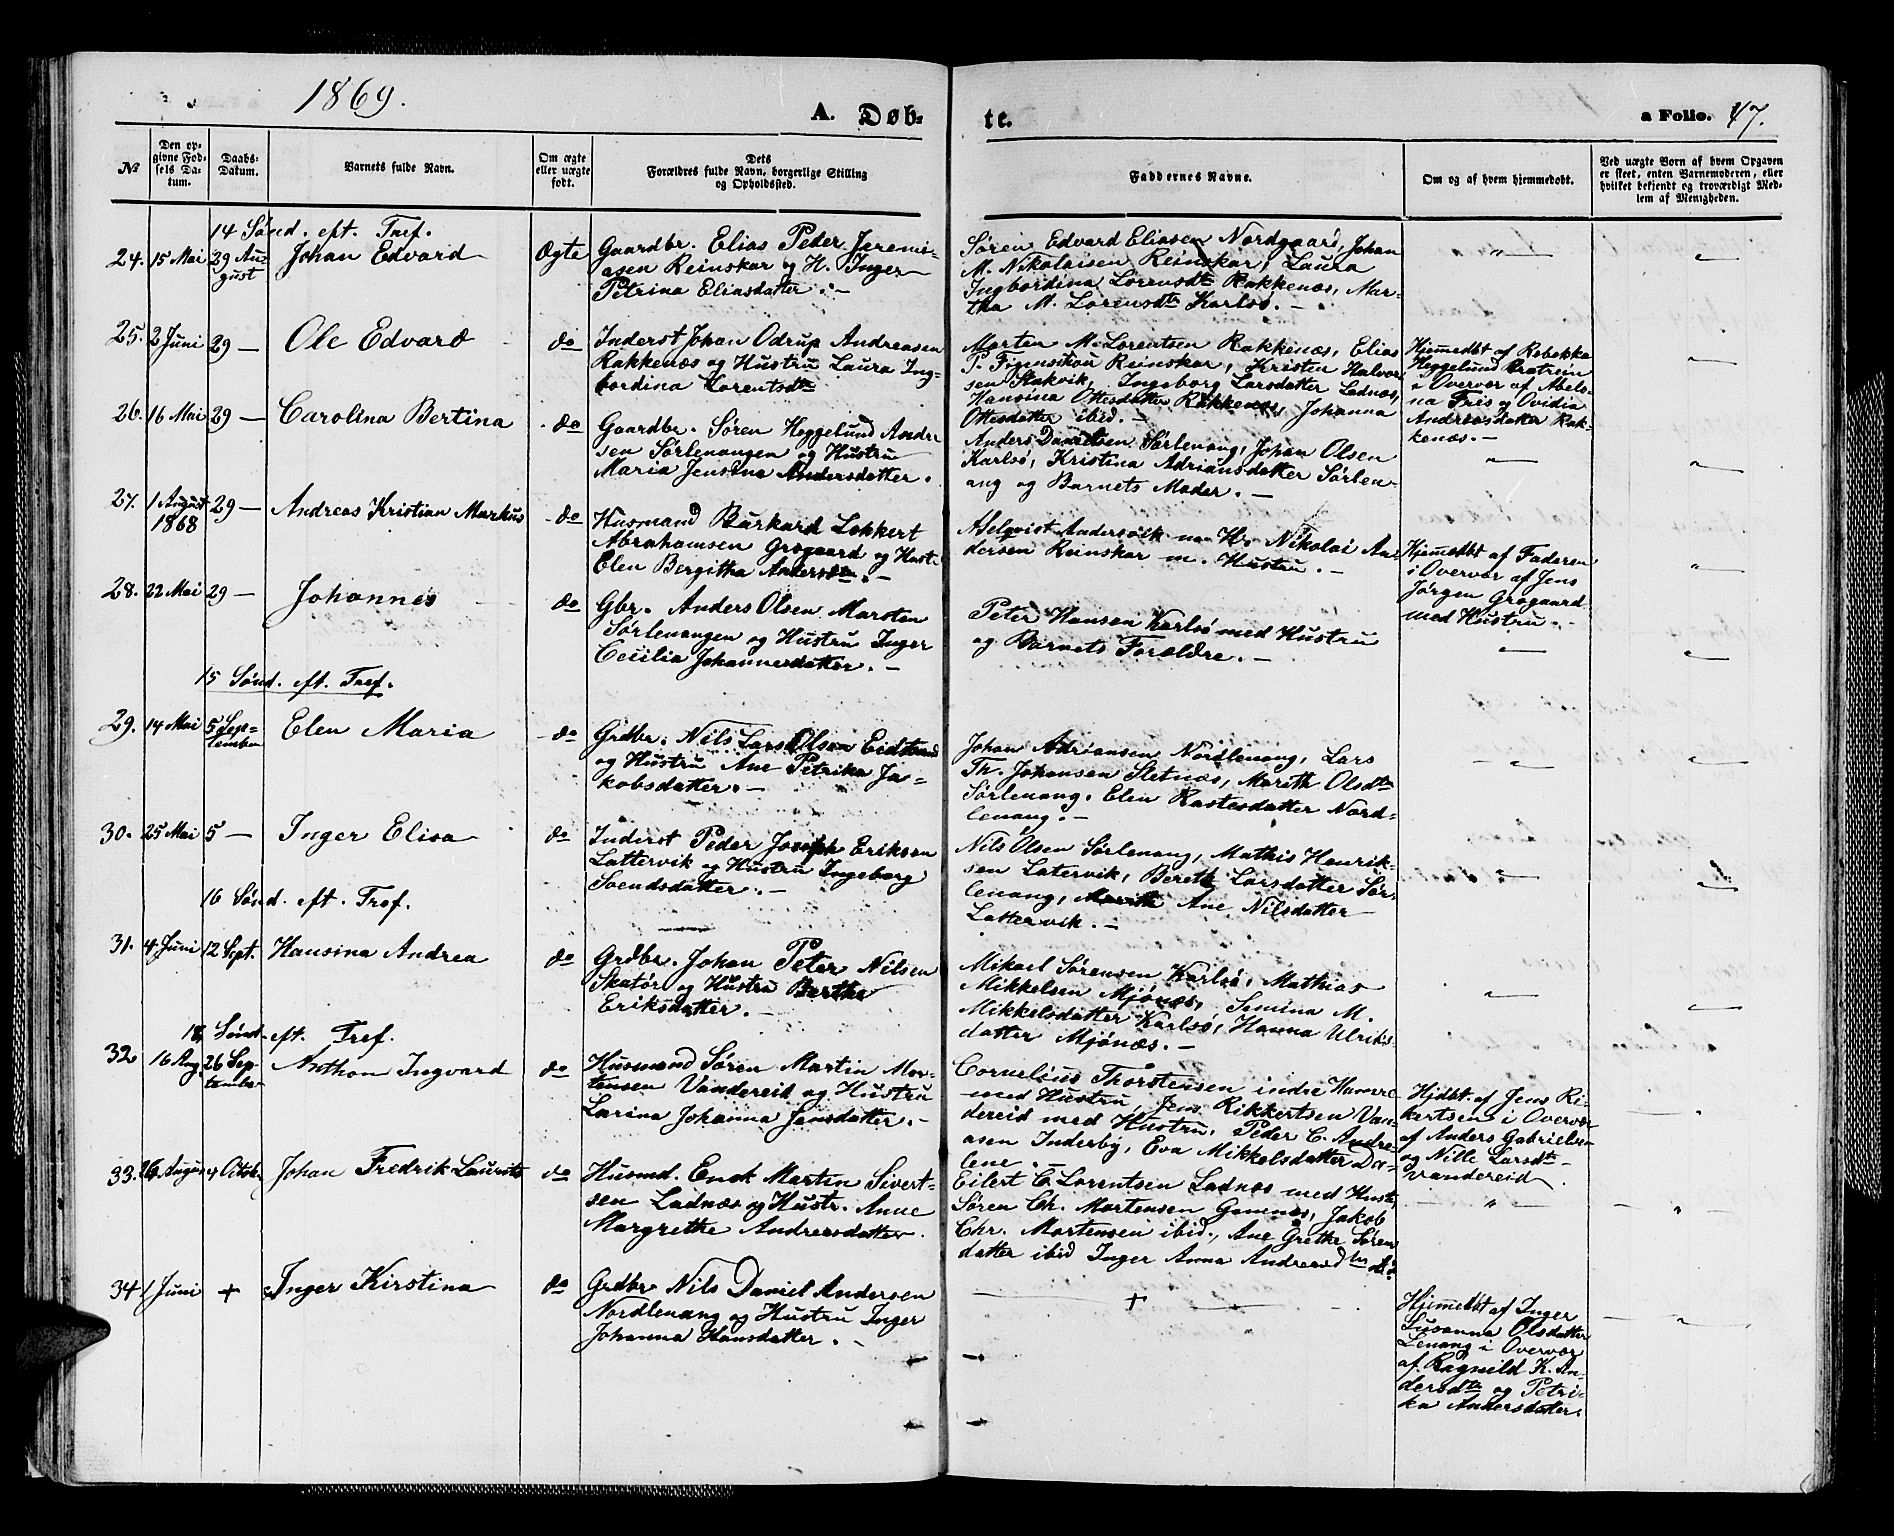 1869.
A. Døb-
te.
a Folio. 47.
№
Den op-
givne Fød-
sels Da-
tum.
Daabs-
Datum.
Barnets fulde Navn.
Om ægte
eller uægte
født.
Dets
Forældres fulde Navn, borgerlige Stilling
og Opholdssted.
Faddernes Navne.
Om og af hvem hjemmedøbt.
Ved uægte Børn af hvem Opgaven
er skeet, enten Barnemoderen, eller
hvilket bekjendt og troværdigt Med-
lem af Menigheden.
14 Sønd. eft. Tref.
24. 15 Mai 29 Au-
gust
Johan Edvard
Ægte
Gaardbr. Elias Peder Jeremi-
asen Reinskar og H. Inger
Petrina Eliasdatter. -
Søren Edvard Eliasen Nordgaard, Johan
M. Nikolaisen Reinskar, Laura
Ingbordina Lorensdtr Rakkenæs, Mar-
tha M. Lorensdtr Karlsø. -
"
25. 2 Juni 29 —
Ole Edvard
do
Inderst Johan Odrup Andreasen
Rakkenæs og Hustru Laura Ing-
bordina Lorentsdtr
Morten M. Lorentsen Rakkenæs, Elias
P. Reinskar, Kristen Halvor-
sen Stakvik, Ingeborg Larsdatter Ladnæs,
Hansina Ottesdatter Rakkenæs, Johanna
Ottesdatter ibid. -
Hjemmedbt af Rebekka
Heggelund
i Overvær af Abels-
na Friis og Ovidia
Andreasdatter Rak-
kenæs. -
26. 16 Mai 29 —
Carolina Bertina
do
Gaardbr. Søren Heggelund Andre-
sen Sørlenangen og Hustru
Maria Jensina Andersdatter.
Anders Danielsen Sørlenang, Johan Olsen
Karlsø, Kristina Adriansdatter Sørlen-
ang og Barnets Moder. -
"
27. 1 August
1868
29 —
Andreas Kristian Markus
do
Husmand Burkard Lokkert
Abrahamsen Grøgaard og Hustr.
Elen Bergitha Andersdtr. -
Andersølk m H. Nikolai An-
dersen Reinskar m. Hustru. -
Hjemmedbt af Faderen
i Overvær af Jens
Jørgen Grøgaard
med Hustru. -
"
28. 22 Mai 29 —
Johannes
do
Gbr. Anders Olsen Marsten
Sørlenangen og Hustru Inger
Cecilia Johannesdatter. -
Peter Hansen Karlsø med Hustru
og Barnets Forældre. -
15 Sønd. eft. Tref.
29. 14 Mai 5 Sep-
tember
Elen Maria
do
Grdbr. Nils Lars Olsen Eidstrand
og Hustru Ane Petrika Ja-
kobsdatter. -
Johan Adriansen Nordlenang, Lars
Th. Johansen Sletnæs, Marith Olsdtr
Sørlenang, Elen Rastesdatter Nord-
lenang. -
30. 25 Mai 5 —
Inger Elisa
do
Inderst Peder Joseph Eriksen
Lattervik og Hustru Ingeborg
Svendsdatter. -
Nils Olsen Sørlenang, Mathis Henrik-
sen Latervik, Bereth Larsdatter Sør-
lenang, Ane Nilsdatter
Lattervik. -
16 Sønd. eft. Tref.
31. 4 Juni 12 Sept.
Hansina Andrea
do
Grdbr. Johan Peter Nilsen
Skatør og Hustru Berthe
Eriksdatter. -
Mikael Sørensen Karlsø, Mathias
Mikkelsen Mjønæs, Simina M.
Mikkelsdatter Karlsø, Hanna Ulriks-
datter Mjønæs. -
"
18 Sønd. eft. Tref.
32 16 Aug. 26 Sep-
tember
Anthon Ingvard
do
Husmand Søren Martin Mor-
tensen Vandereid og Hustru
Larina Johanna Jensdatter. -
Cornelius Thorstensen indre Hamre
med Hustru, Jens Rikkertsen Van-
dereid med Hustru, Peder C. Andre-
asen Inderby, Eva Mikkelsdatter Da-
lene. -
Hjdbt. af Jens Ri-
kertsen i Overvær
af Anders Gabrielsen
og Nille Larsdtr
Vandereid
33. August 4 Octob.
Johan Fredrik Laurits
do
Husmd. Enok Martin Sivert-
sen Ladnæs og Hustr. Anne
Margrethe Andreasdatter.
Eilert C. Lorentsen Ladnæs med Hustr,
Søren Chr. Mortensen Gamnæs, Jakob
Chr. Mortensen ibid., Ane Grethe Søren-
datter ibid Inger Anna Andreasdtr
"
34 1 Juni +
Inger Kirstina
do
Grdbr Nils Daniel Andersen
Nordlenang og Hustru Inger
Johanna Hansdatter. -
+
Hjemmedbt af Inger
Susanna Olsdatter
Lenang i Overvær
af Ragnild K. An-
dersdtr og Petri-
ka Andersdatter.
"